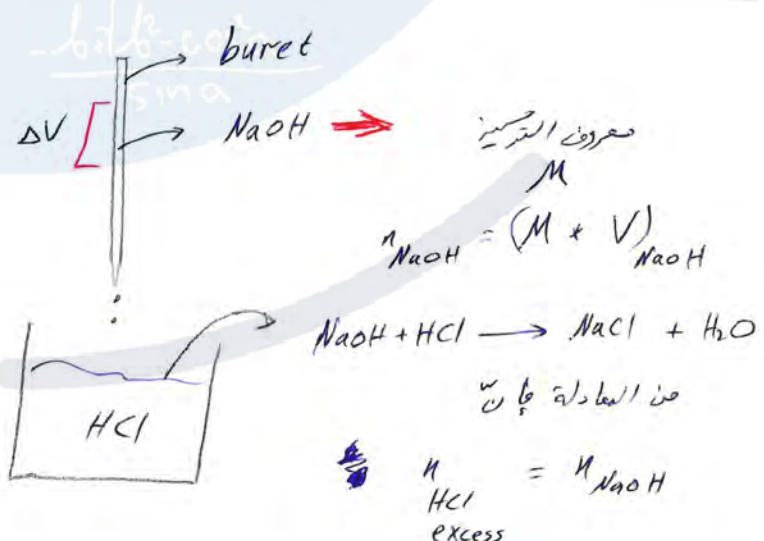 -b±√b²-co
sin a
buret
ΔV
NaOH
معروف التركيز
M
n NaOH = (M * V) NaOH
NaOH + HCl → NaCl + H₂O
من المعادلة فإنّ
HCl
n HCl excess = n NaOH